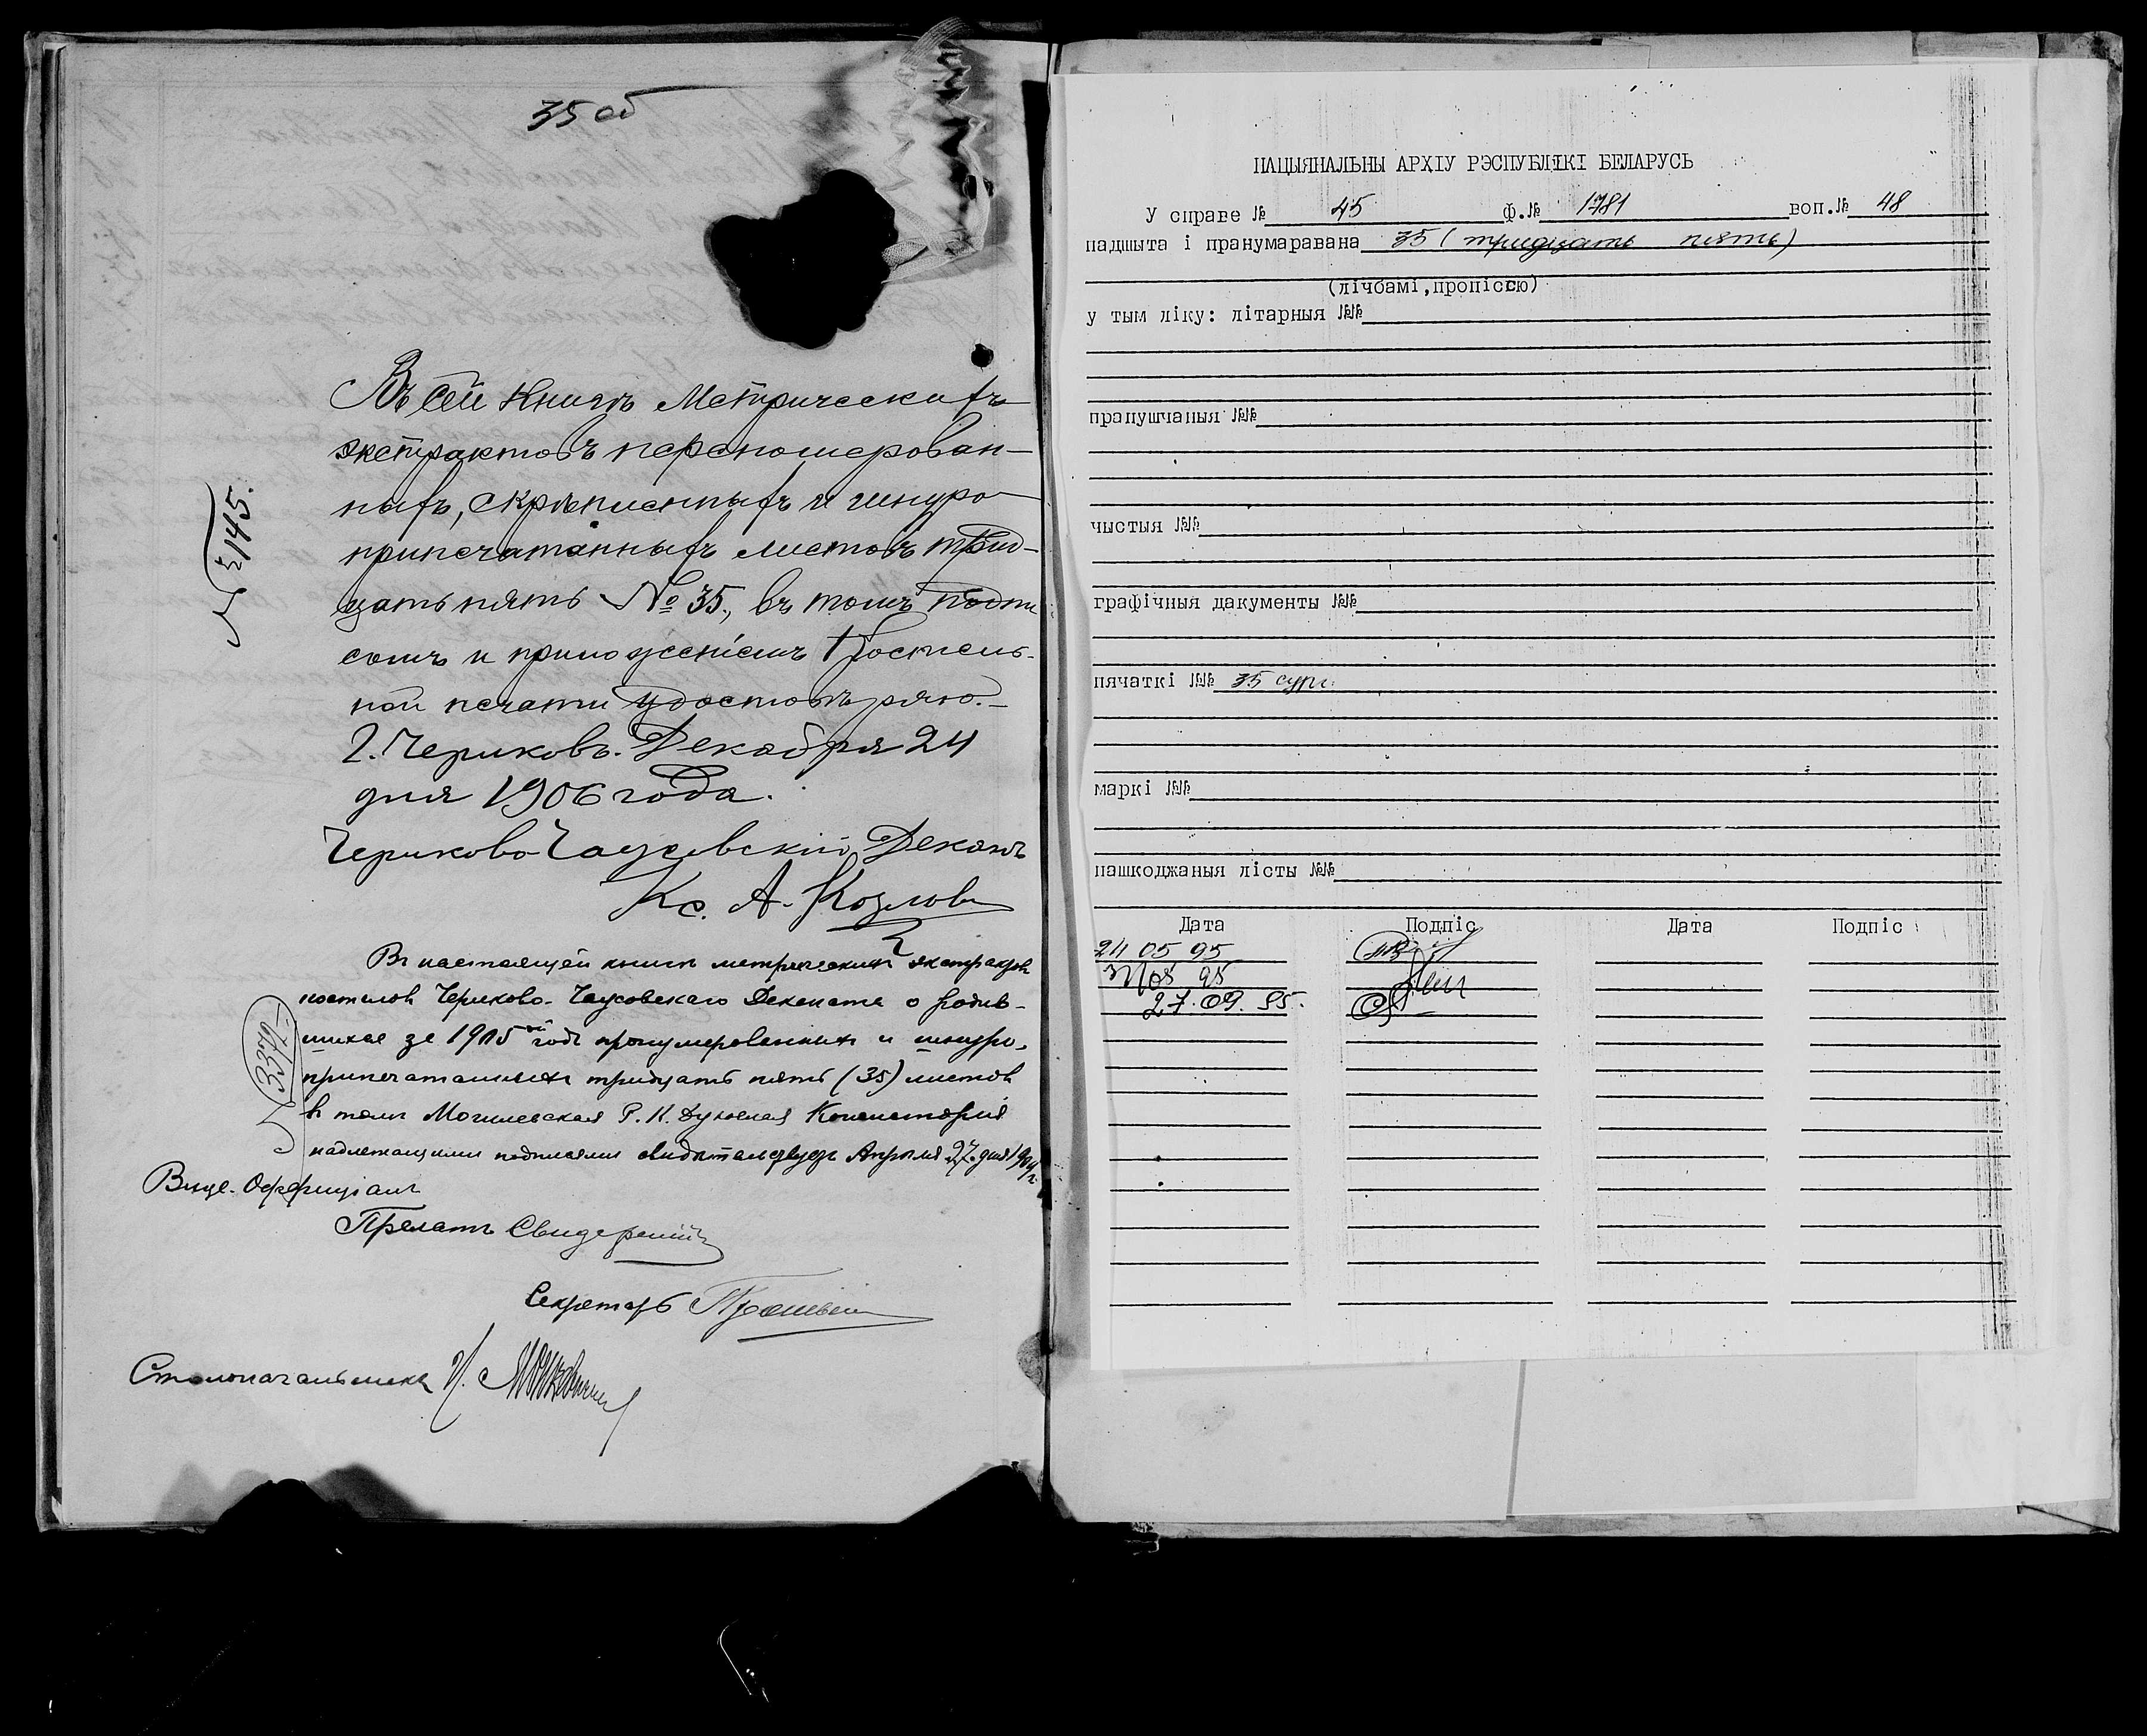 35 об
№ 145.
Въ сей Книгѣ Метрическихъ
экстрактовъ переномерован-
ныхъ, скрѣпленныхъ и шнуро-
припечатанныхъ листовъ трид-
цать пять № 35., въ томъ подпи
сомъ и приложеніемъ Костель-
ной печати удостовѣряю.-
Г. Чериковъ. Декабря 24
дня 1906 года.
Чериково Чаусовскій Деканъ
Кс. А. Козлов
№ 3372
Въ настоящей книгѣ метрическихъ экстрактовъ
костелов Чериково-Чаусовскаго Деканата о родив-
шихся за 1905 годъ пронумерованныхъ и шнуро-
припечатанныхъ тридцать пять (35) листов
в томъ Могилевская Р. К. Духовная Консисторія
надлежащими подписями свидѣтельствуетъ Апрѣля 27 дня
Вице-Оффиціалъ
Прелатъ Свидерскій
Секретарь
Столоначальникъ
НАЦЫЯНАЛЬНЫ АРХІУ РЭСПУБЛІКІ БЕЛАРУСЬ
У справе № 45 ф.№ 1781 воп.№ 48
падшыта і пранумаравана 35 (тридцать пять)
(лічбамі,пропіссю)
у тым ліку: літарныя №№
прапушчаныя №№
чыстыя №№
графічныя дакументы №№
пячаткі №№ 35 сург.
маркі №№
пашкоджаныя лісты №№
Дата Подпіс Дата Подпіс
24 05 95
27.09.95.